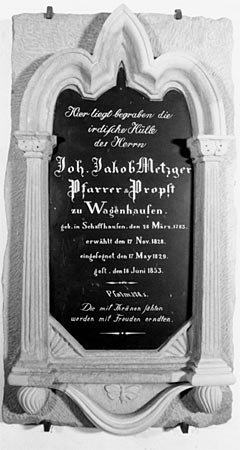 Hier liegt begraben die
irdische Hülle
des Herrn
Joh. Jakob Metzger
Pfarrer & Propst
zu Wagenhausen.
geb. in Schaffhausen, den 28 März. 1783.
erwählt den 17 Nov. 1828.
eingesegnet den 17 May 1829.
gest. den 18 Juni 1853.
Psalm
Die mit Thränen sähen
werden mit Freuden erndten.